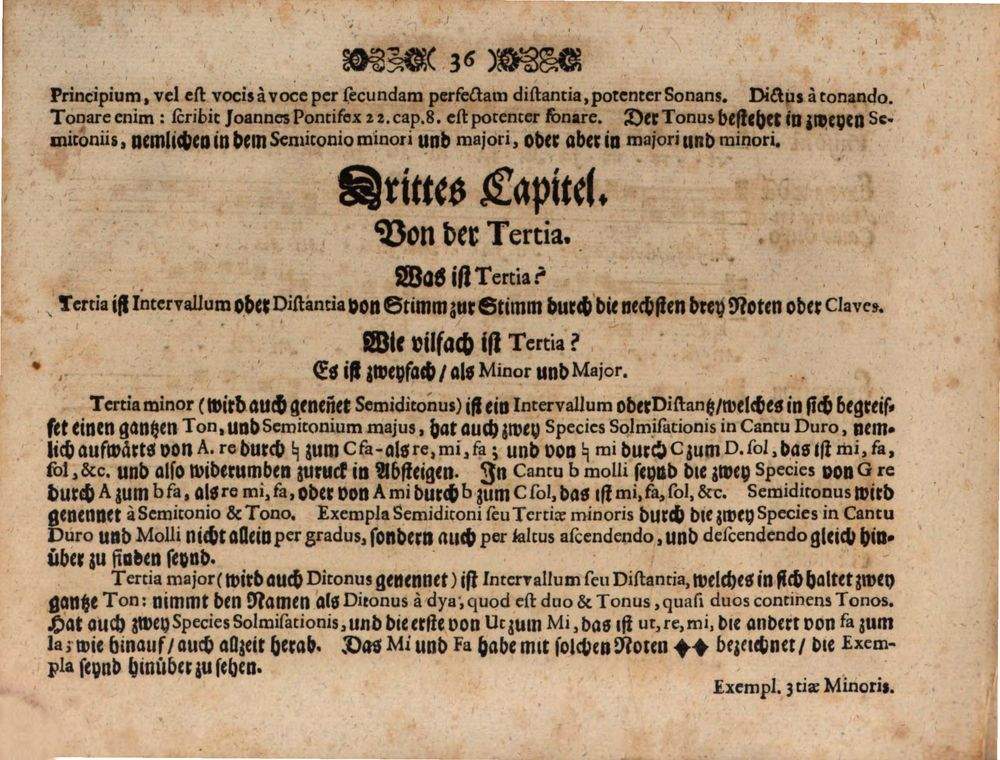 ( 36 )
Principium, vel est vocis à voce per secundam perfectam distantia, potenter Sonans. Dictus à tonando.
Tonare enim : scribit Joannes Pontifex 22. cap. 8. est potenter sonare. Der Tonus bestehet in zweyen Se-
mitoniis, nemlichen in dem Semitonio minori und majori, oder aber in majori und minori.
Drittes Capitel.
Von der Tertia.
Was ist Tertia?
Tertia ist Intervallum oder Distantia von Stimm zur Stimm durch die nechsten drey Noten oder Claves.
Wie vilfach ist Tertia?
Es ist zweyfach / als Minor und Major.
Tertia minor (wird auch geneñet Semiditonus) ist ein Intervallum oder Distantz/welches in sich begreif-
fet einen gantzen Ton, und Semitonium majus, hat auch zwey Species Solmisationis in Cantu Duro, nem-
lich aufwärts von A. re durch ♮ zum C fa- als re, mi, fa ; und von ♮ mi durch C zum D. sol, das ist mi, fa,
sol, &c. und also widerumben zuruck in Absteigen. In Cantu b molli seynd die zwey Species von G re
durch A zum b fa, als re mi, fa, oder von A mi durch b zum C sol, das ist mi, fa, sol, &c. Semiditonus wird
genennet à Semitonio & Tono. Exempla Semiditoni seu Tertiæ minoris durch die zwey Species in Cantu
Duro und Molli nicht allein per gradus, sondern auch per saltus ascendendo, und descendendo gleich hin-
über zu finden seynd.
Tertia major (wird auch Ditonus genennet) ist Intervallum seu Distantia, welches in sich haltet zwey
gantze Ton: nimmt den Namen als Ditonus à dya, quod est duo & Tonus, quasi duos continens Tonos.
Hat auch zwey Species Solmisationis, und die erste von Ut zum Mi, das ist ut, re, mi, die andert von fa zum
la; wie hinauf / auch allzeit herab. Das Mi und Fa habe mit solchen Noten ◆◆ bezeichnet / die Exem-
pla seynd hinüber zu sehen.
Exempl. 3tiæ Minoris.